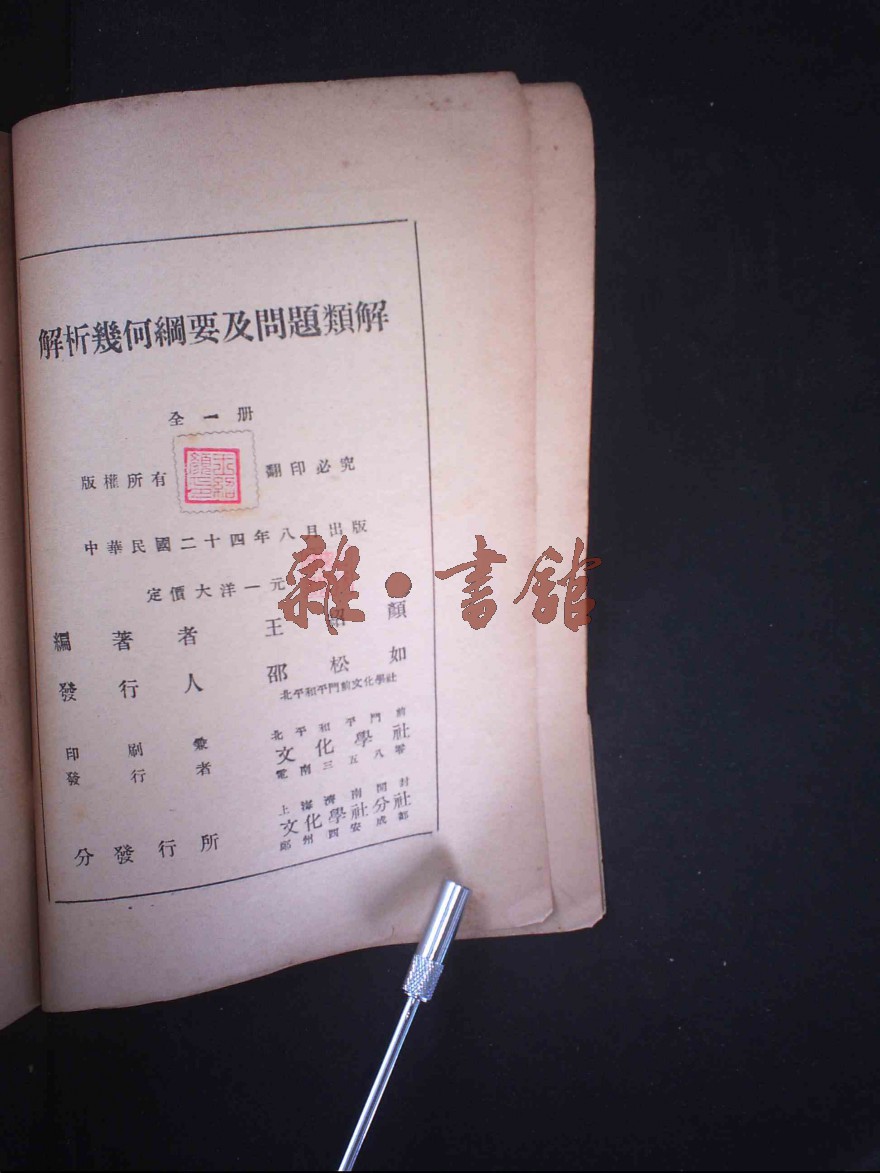 解析幾何綱要及問題類解
全一册
版權所有 翻印必究
中華民國二十四年八月出版
定價大洋一元
編著者 王紹顏
發行人 邵松如
北平和平門前文化學社
印刷兼 北平和平門前
文化學社
發行者 電南三五八
上海濟南開封
分發行所 文化學社分社
鄭州西安成都
雜·書館